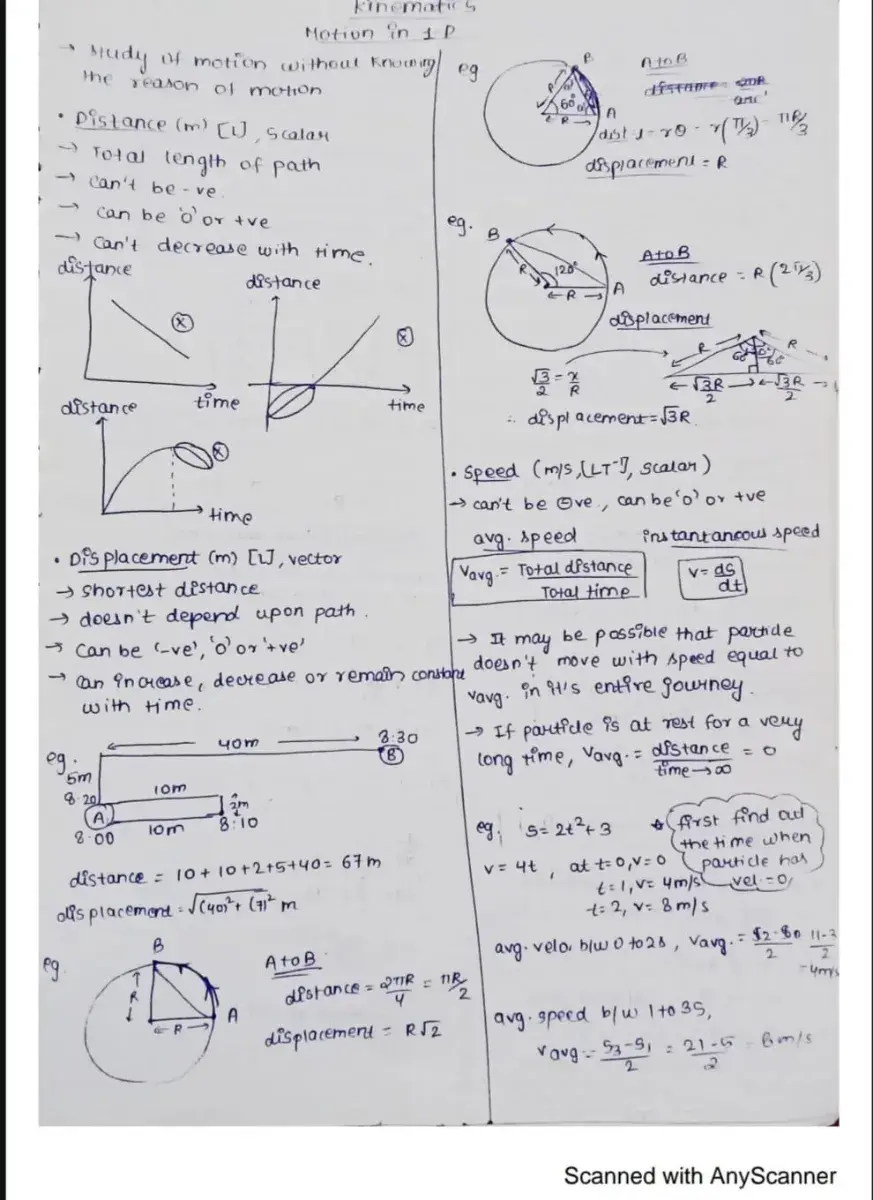 Kinematics
Motion in 1 D
→ Study of motion without knowing the reason of motion
• Distance (m) [L], Scalar
→ Total length of path
→ can't be -ve
→ can be '0' or +ve
→ can't decrease with time.
distance
time
distance
time
distance
time
• Displacement (m) [L], vector
→ shortest distance
→ doesn't depend upon path.
→ Can be '-ve', '0' or '+ve'
→ can increase, decrease or remain constant
with time.
eg.
40m
8:30
B
5m
8:20
10m
A
2m
8:00
10m
8:10
distance = 10 + 10 + 2 + 5 + 40 = 67 m
displacement = √(40)² + (7)² m
eg.
B
R
R
A
A to B
distance = 2πR/4 = πR/2
displacement = R√2
eg
B
R
60°
R
A
A to B
dist = rθ = r(π/3) = πR/3
displacement = R
eg.
B
R
120°
R
A
A to B
distance = R(2π/3)
displacement
√3/2 = x/R
R
R
60°
√3R/2
√3R/2
∴ displacement = √3R
• Speed (m/s, [LT⁻¹], scalar)
→ can't be ⊖ve, can be '0' or +ve
avg. speed
instantaneous speed
Vavg. = Total distance / Total time
v = ds/dt
→ It may be possible that particle
doesn't move with speed equal to
vavg. in it's entire journey.
→ If particle is at rest for a very
long time, Vavg. = distance / time → ∞ = 0
eg. s = 2t² + 3
first find out
the time when
particle has
vel = 0
v = 4t, at t=0, v=0
t=1, v= 4m/s
t=2, v= 8m/s
avg. velo. b/w 0 to 2s, Vavg. = S2-S0/2 11-3/2
= 4m/s
avg. speed b/w 1 to 3s,
vavg = S3-S1/2 = 21-5/2 = 8m/s
Scanned with AnyScanner